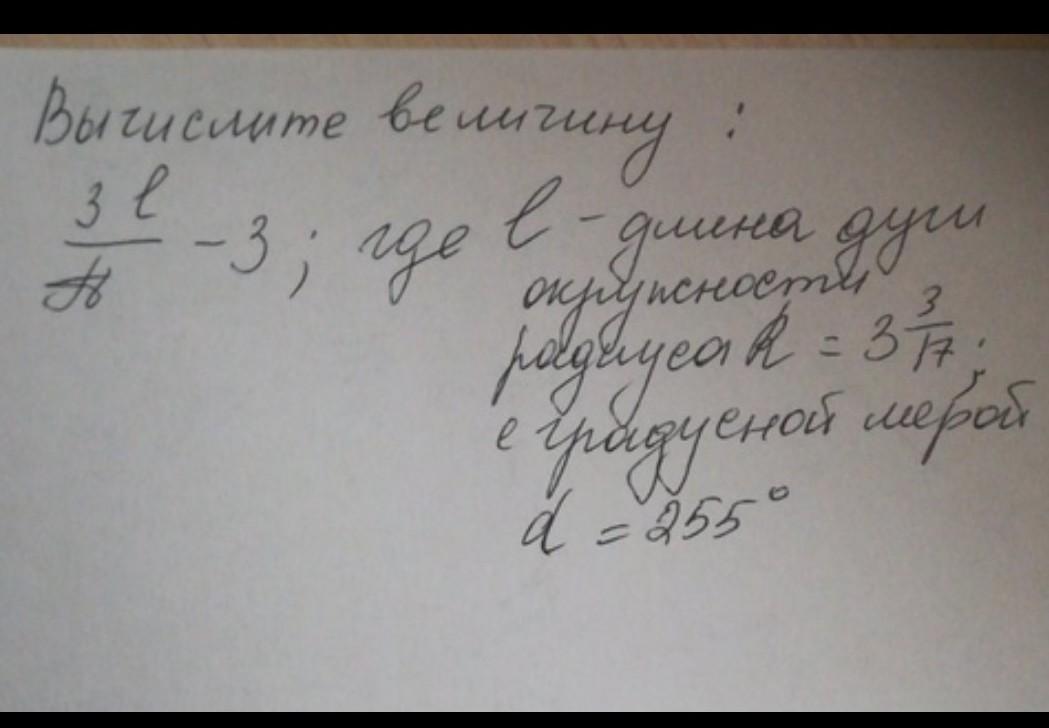 Вычислите величину :
3 l / π - 3 ; где l - длина дуги
окружности
радиуса R = 3 3/17 ;
с градусной мерой
α = 255°